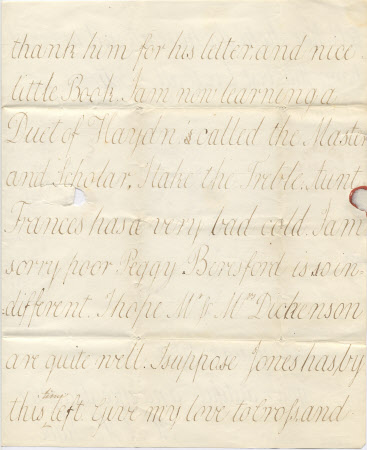 thank him for his letter and nice
little Book. I am now learning a
Duet of Haydn's called the Master
and Scholar, I take the Treble. Aunt
Frances has a very bad cold. I am
sorry poor Peggy Beresford is so in-
different. I hope Mr & Mrs Dickenson
are quite well. I suppose Jones has by
this time left Give my love to Cross and